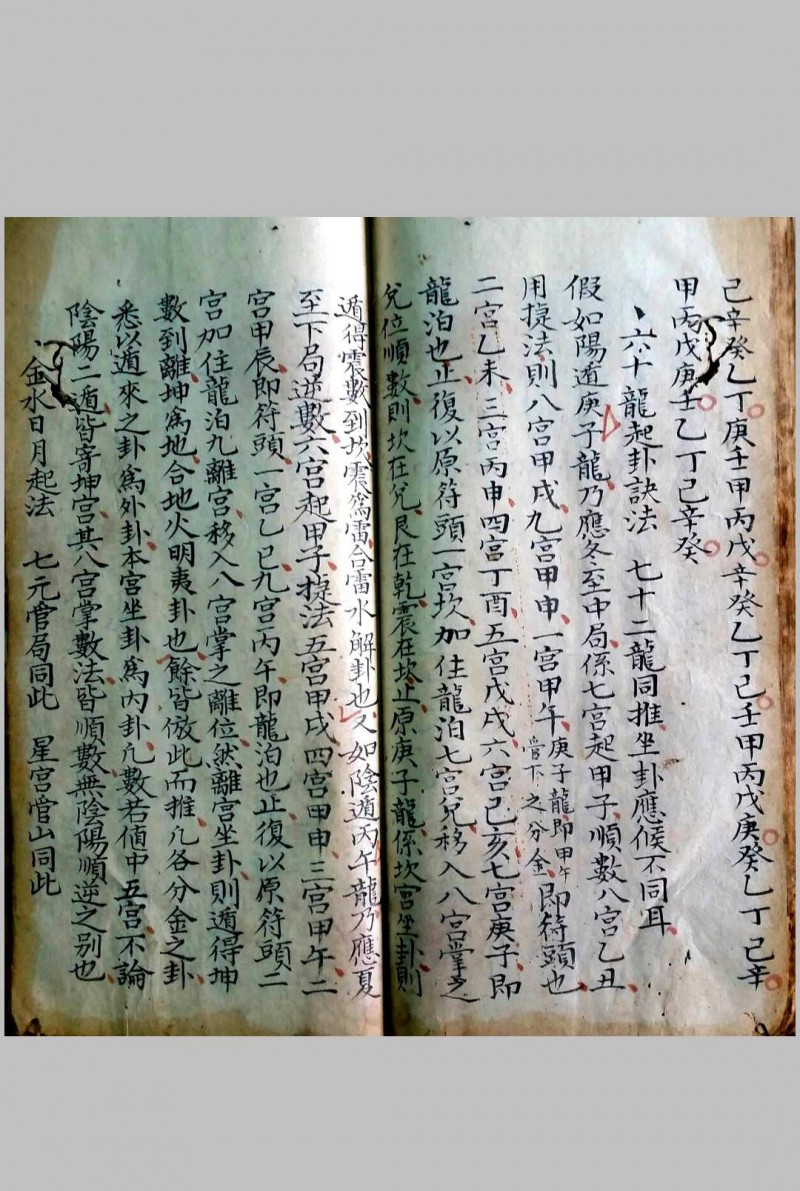 己辛癸乙丁庚壬甲丙戊辛癸乙丁己壬甲丙戊庚癸乙丁己辛
甲丙戊庚壬乙丁己辛癸
六十龍起卦訣法　七十二龍同推坐卦應候不同耳
假如陽遁庚子龍乃應冬至中局係七宮起甲子順數八宮乙丑
用捷法則八宮甲戌九宮甲申一宮甲午庚子龍即甲午管下之分金即符頭也
二宮乙未三宮丙申四宮丁酉五宮戊戌六宮己亥七宮庚子即
龍泊也止復以原符頭一宮坎加住龍泊七宮兌移入八宮掌之
兌位順數則坎在兌艮在乾震在坎止原庚子龍係坎宮坐卦則
遁得震數到坎震為雷合雷水解卦也又如陰遁丙午龍乃應夏
至下局逆數六宮起甲子捷法五宮甲戌四宮甲申三宮甲午二
宮甲辰即符頭一宮乙巳九宮丙午即龍泊也止復以原符頭二
宮加住龍泊九離宮移入八宮掌之離位然離宮坐卦則遁得坤
數到離坤為地合地火明夷卦也餘皆倣此而推凡各分金之卦
悉以遁來之卦為外卦本宮坐卦為內卦凡數若值中五宮不論
陰陽二遁皆寄坤宮其八宮掌數法皆順數無陰陽順逆之別也
金水日月起法　七元管局同此　星宮管山同此